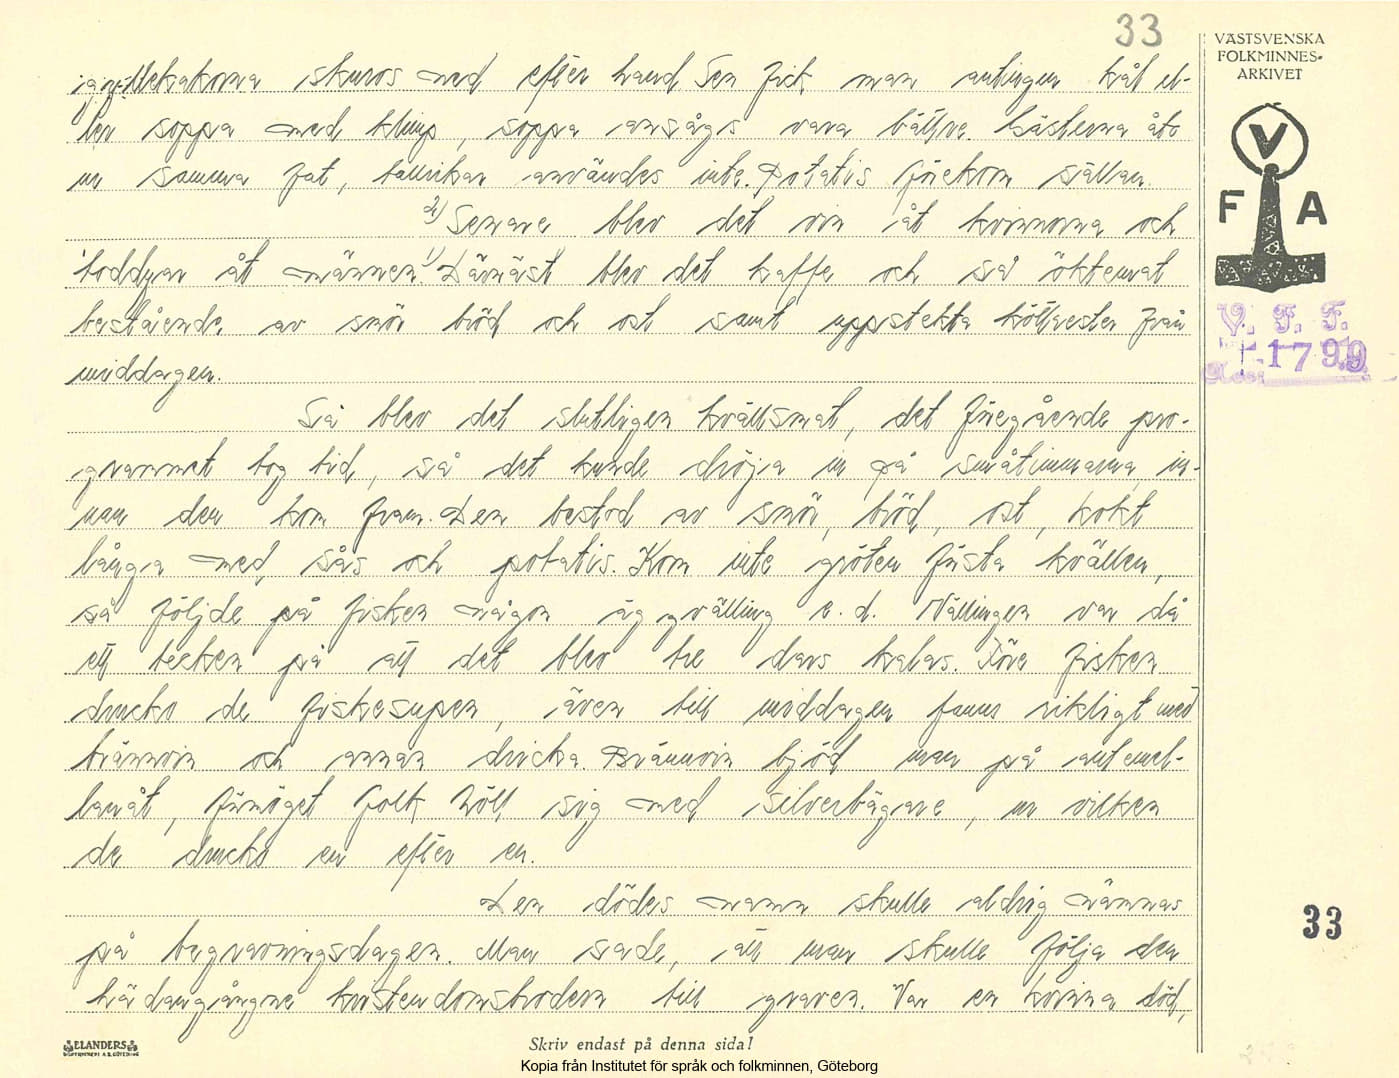 33
VÄSTSVENSKA
FOLKMINNES-
ARKIVET
skuros med efter hand Sen fick man antingen kål el-
ler soppa med klimp, soppa ansågs vara bättre. Gästerna åto
ur samma fat, tallrikar användes inte. Potatis förekom sällan.
2) Senare blev det vin åt kvinnorna och
toddyar åt männen 1) Därnäst blev det kaffe och så
bestående av smör bröd och ost samt uppstekta köttrester från
middagen.
Så blev det slutligen kvällsmat, det föregående pro-
grammet tog tid, så det kunde dröja in på småtimmarna in-
nan den kom fram. Den bestod av smör, bröd, ost, kokt
långa med sås och potatis. Kom inte gröten första kvällen,
så följde på fisken någon äggvälling e. d. Vällingen var då
ett tecken på att det blev tre dars kalas. Före fisken
drucko de fiskesupen, även till middagen fanns rikligt med
brännvin och annan dricka. Brännvin bjöd man på antemel-
lanåt, förmöget folk höll sig med silverbägare, ur vilken
de drucko en efter en.
Den dödes namn skulle aldrig nämnas
på begravningsdagen. Man sade, att man skulle följa den
hädangångne kristendomsbrodern till graven. Var en kvinna död,
V
F A
V. F. F.
1799
33
ELANDERS
BOKTRYCKERI A.B. GÖTEBORG
Skriv endast på denna sida!
Kopia från Institutet för språk och folkminnen, Göteborg